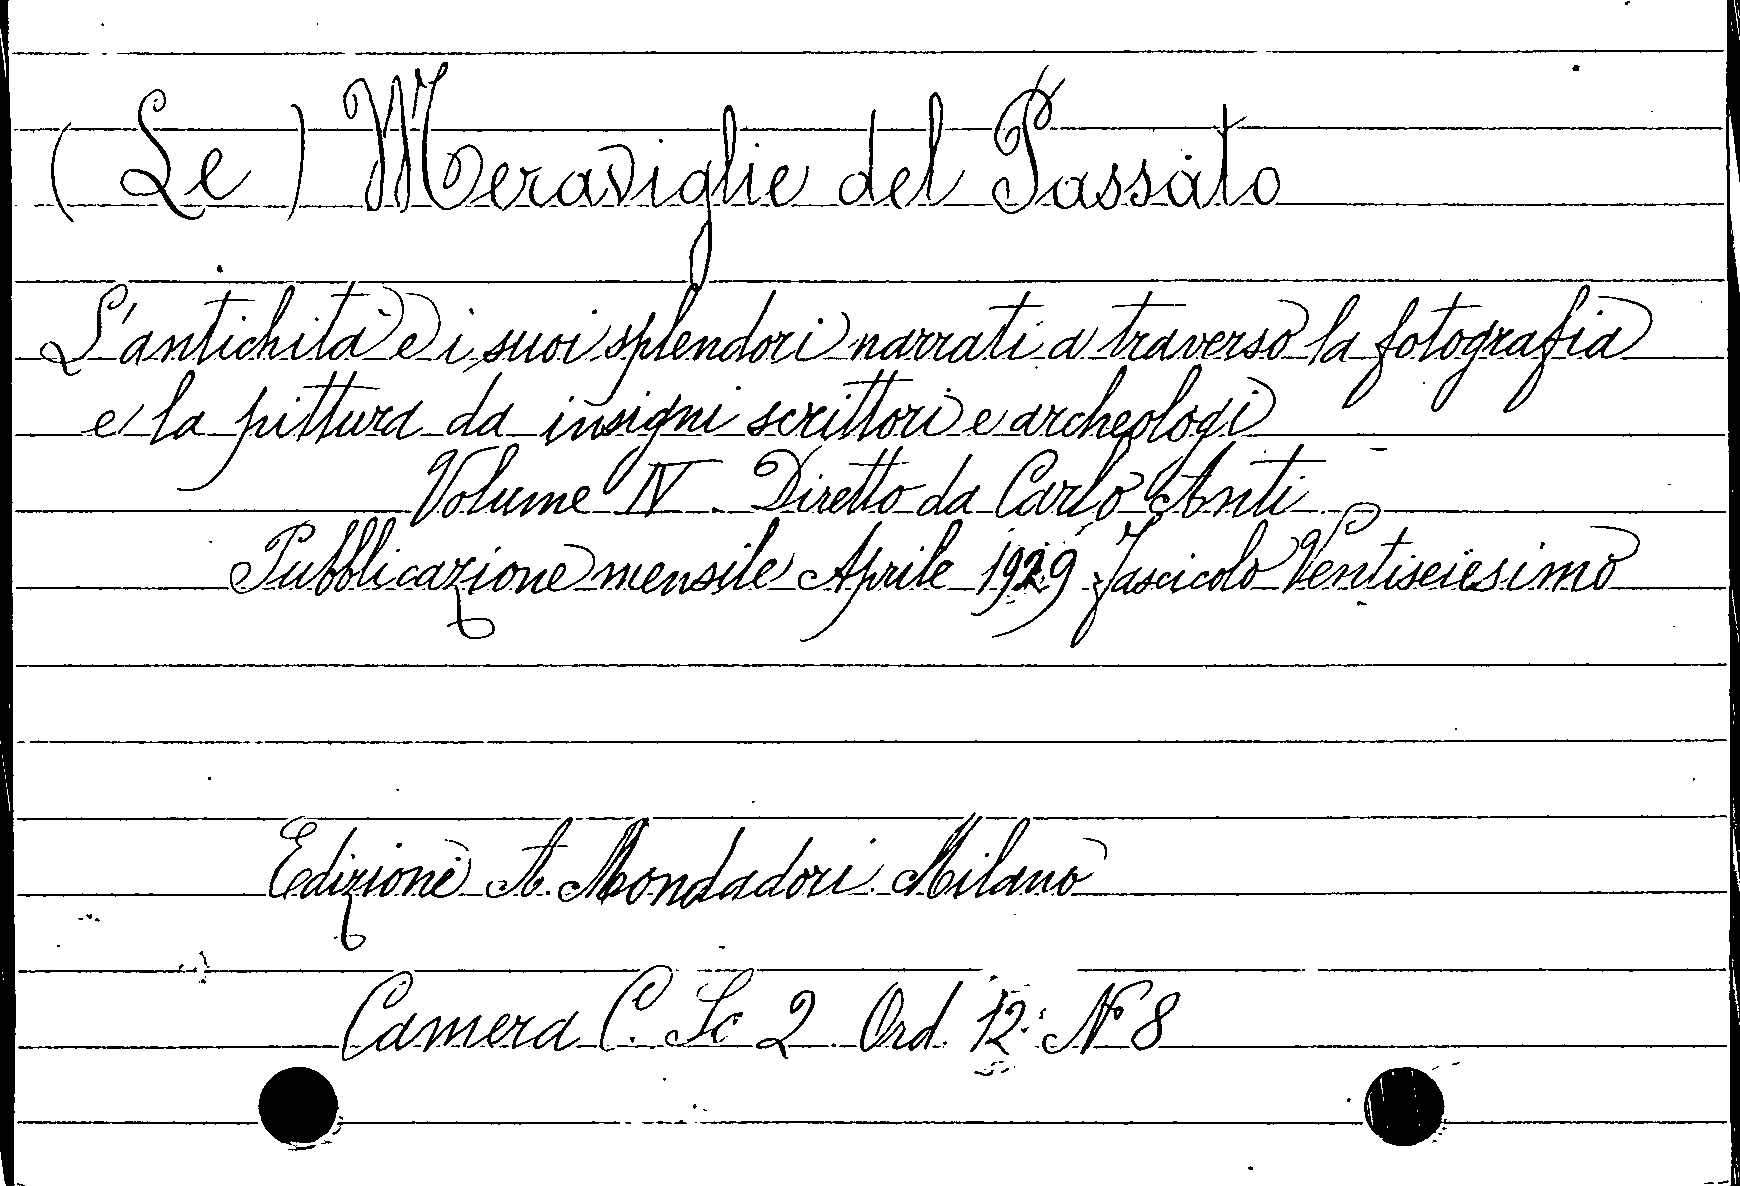 (Le) Meraviglie del Passato
L'antichità e i suoi splendori narrati a traverso la fotografia
e la pittura da insigni scrittori e archeologi
Volume IV. Diretto da Carlo Anti
Pubblicazione mensile Aprile 1929 Fascicolo Ventiseiesimo
Edizione A. Mondadori. Milano
Camera C. Sc 2 Ord. 12: N° 8